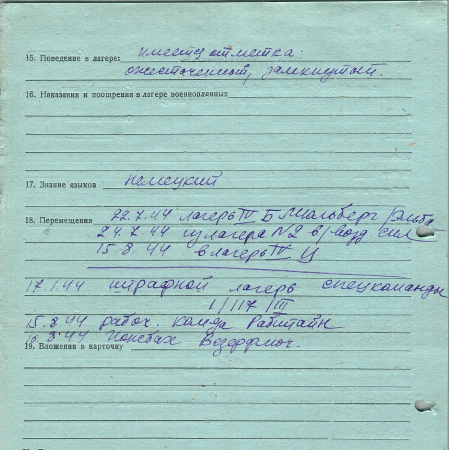 15. Поведение в лагере: имеется отметка:
ожесточенный, замкнутый.
16. Наказания и поощрения в лагере военнопленных
17. Знание языков немецкий
18. Перемещения 22.7.44 лагерь IV Б Мюльберг/Эльба
24.7.44 из лагеря N2 в/возд. сил
15.8.44 в лагерь IV Ц
17.1.44 штрафной лагерь спецкоманды
1/117/III
15.8.44 рабоч. кол-да Рабштайн
8.44
19. Вложения в карточку